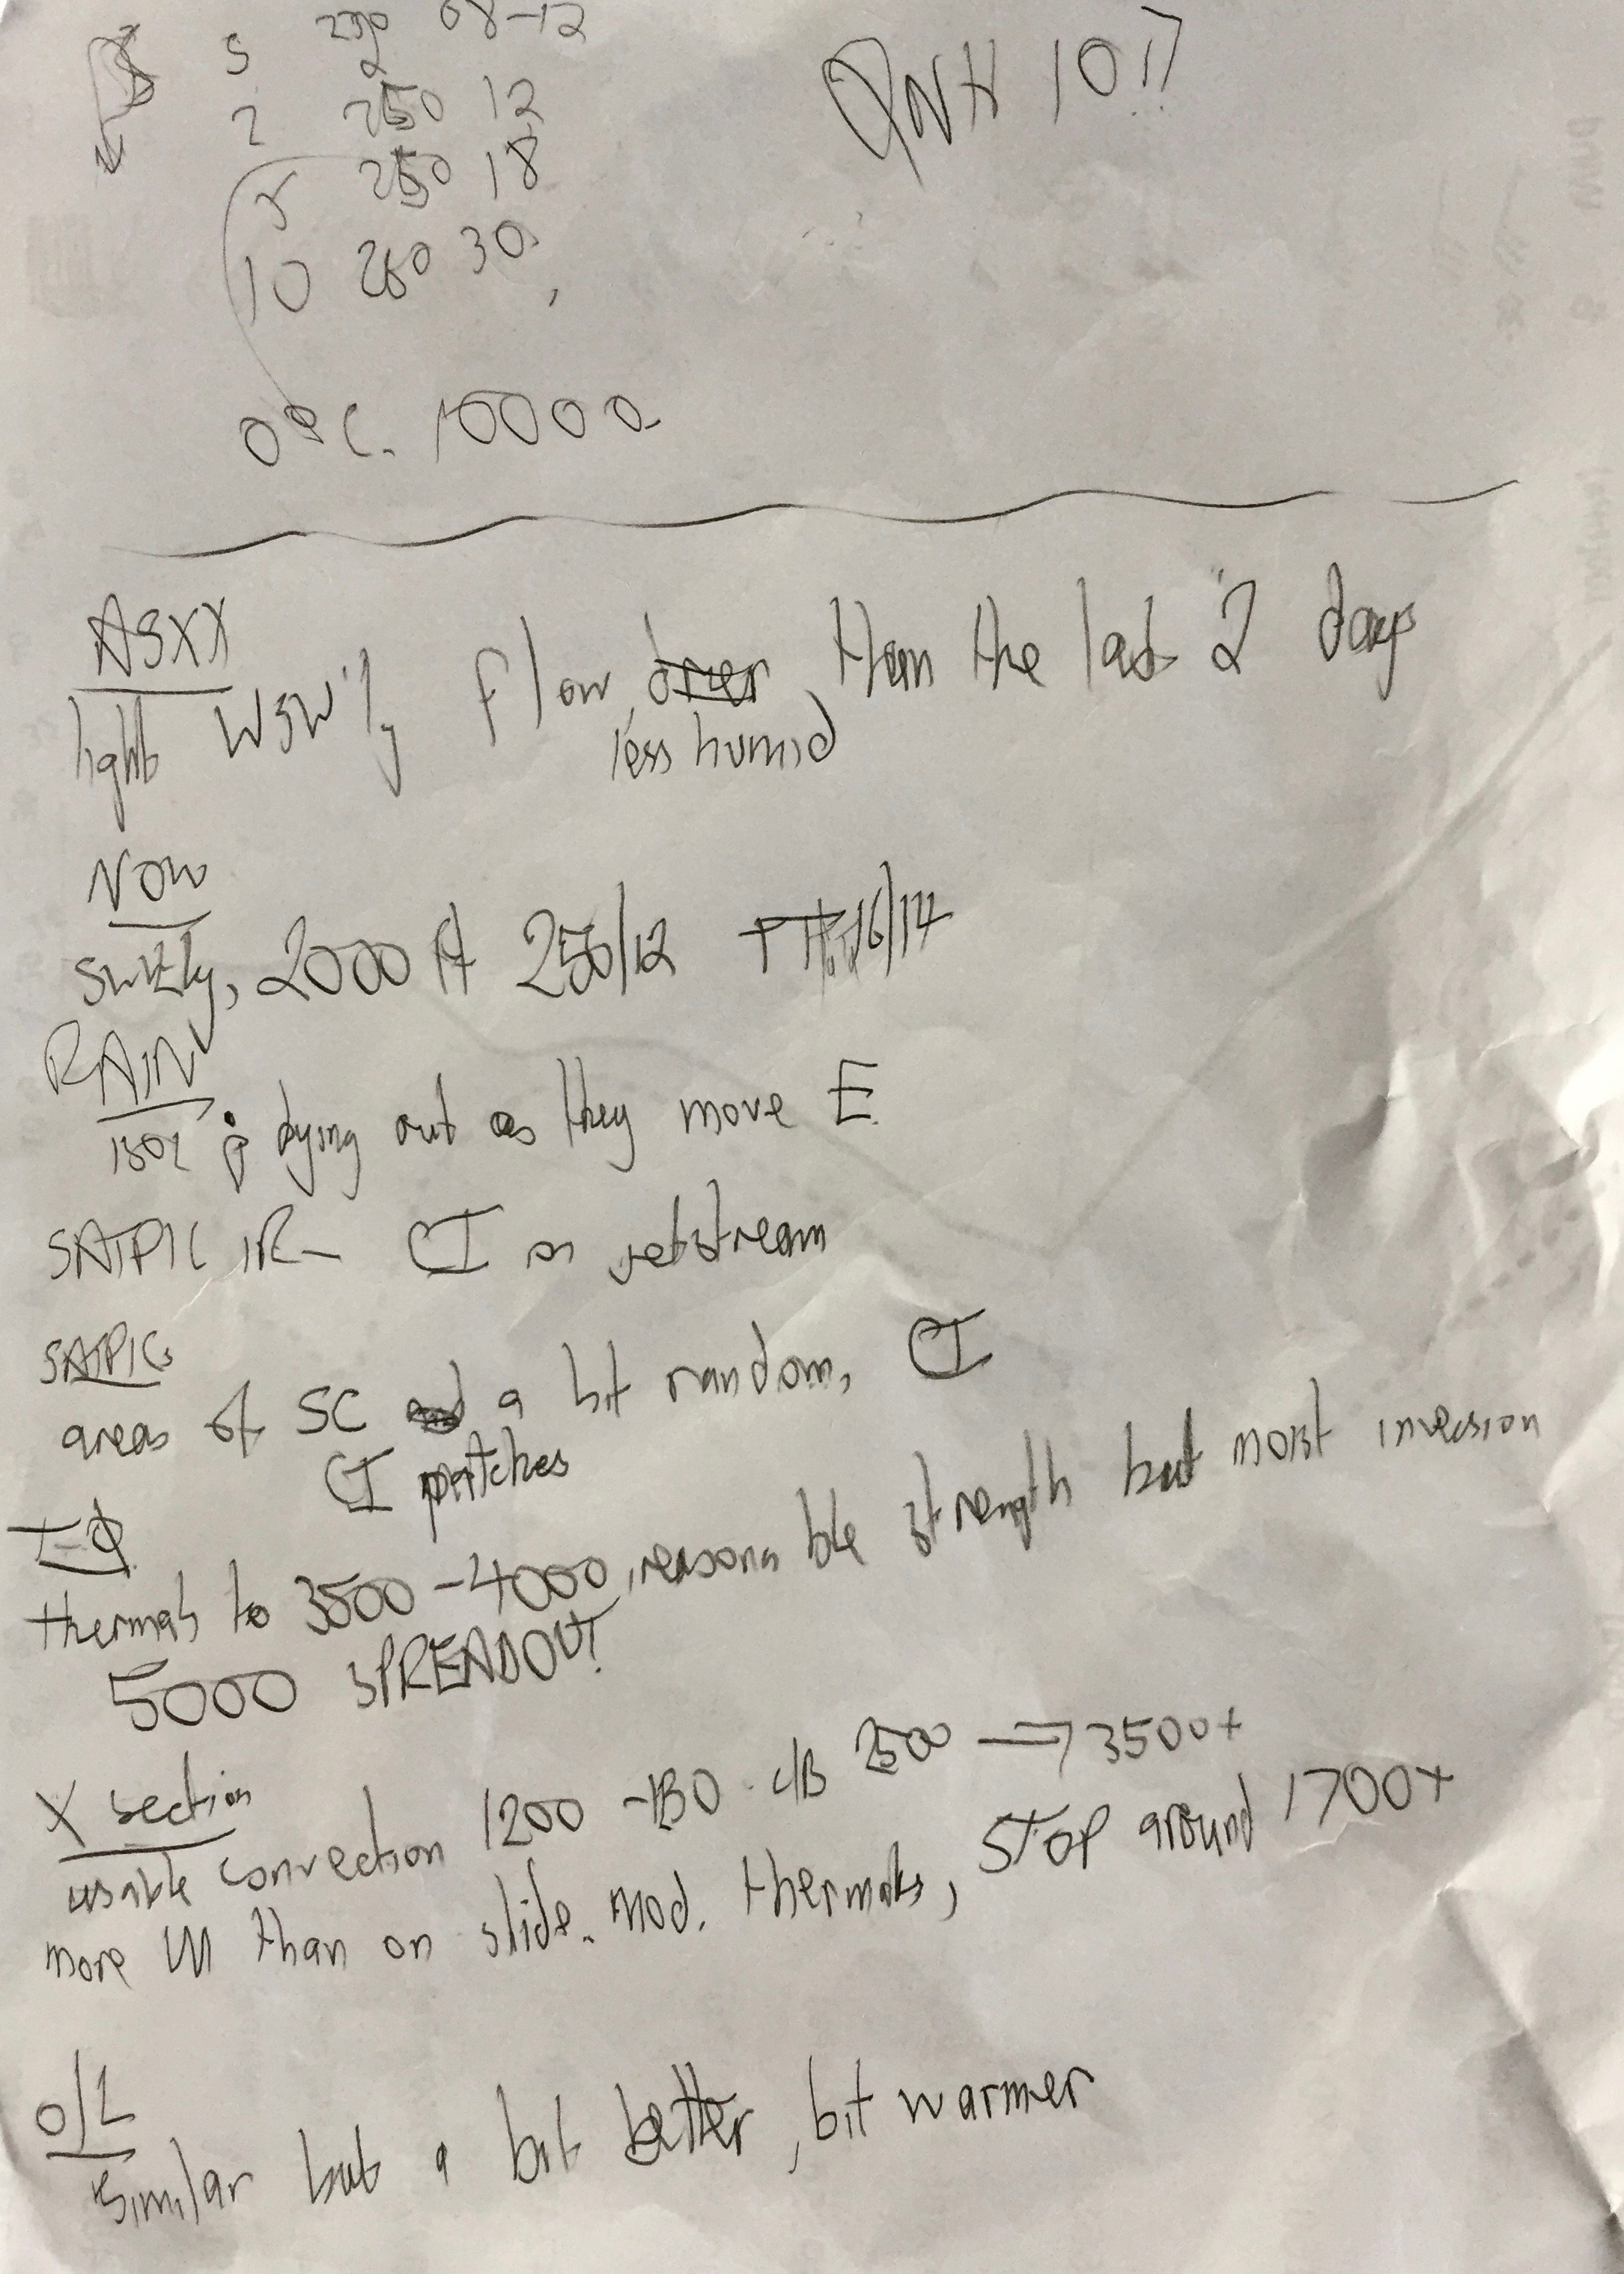 S 08-12
QNH 1017
2 250 12
5 250 18
10 260 30
0°C. 10000
ASXX
light WSW'ly flow, drier than the last 2 days
less humid
NOW
SWly, 2000 ft 250/12 16/14
RAIN
dying out as they move E
SATPIC IR - CI on jetstream
SATPIC
areas of SC a bit random, CI
CI patches
T-Φ
thermals to 3500-4000, reasonable strength but moist inversion
5000 SPREADOUT!
X section
usable convection 1200 - 130 . c/B 2500 → 3500+
more than on slide. Mod. thermals, STOP around 1700+
O/L
Similar but a bit better, bit warmer